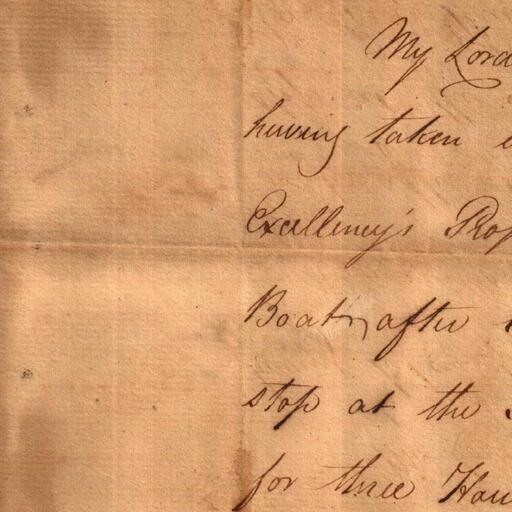 My Lord
having taken
Excellency's Prop
Boat, after
stop at the
for three Hou